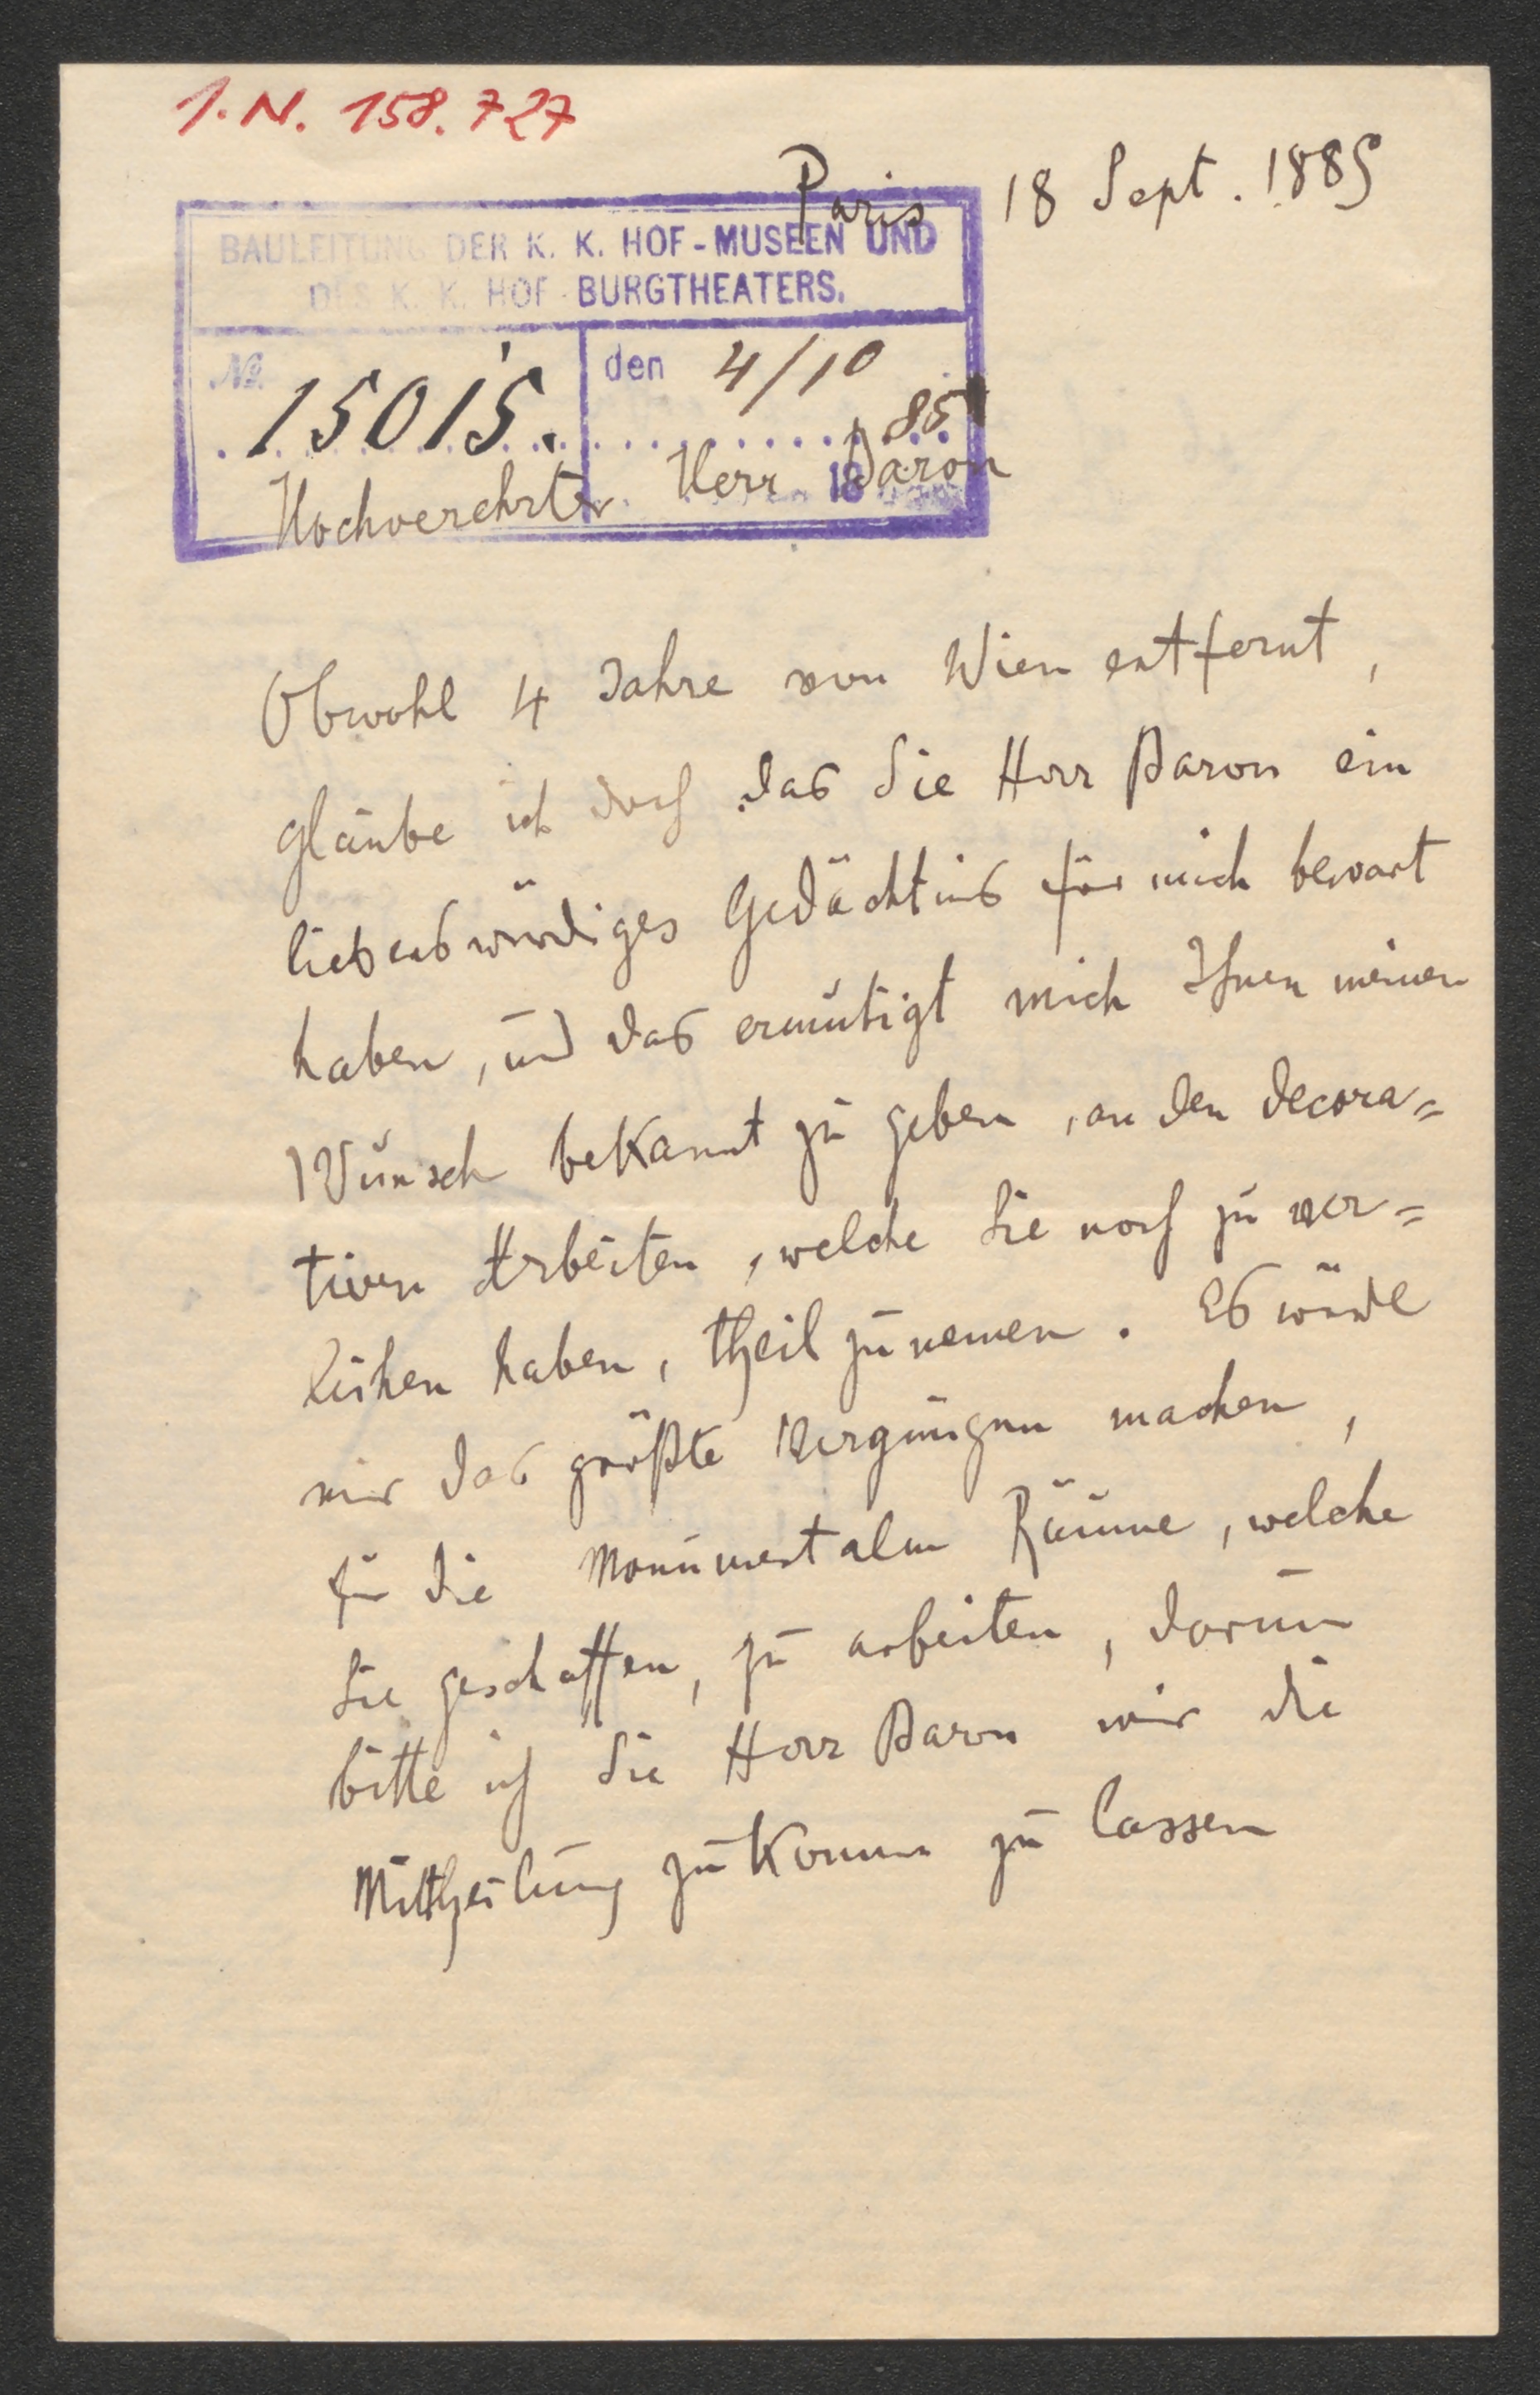 I.N. 158.727
Paris 18 Sept. 1885
BAULEITUNG DER K. K. HOF-MUSEEN UND
DES K. K. HOF-BURGTHEATERS.
No. 15015. den 4/10
85
18
Hochverehrter Herr Baron
Obwohl 4 Jahre von Wien entfernt,
glaube ich doch das Sie Herr Baron ein
liebenswürdiges Gedächtnis für mich bewart
haben, und das ermutigt mich Ihnen meinen
Wunsch bekannt zu geben, an den decora=
tiven Arbeiten, welche Sie noch zu ver=
leihen haben, theil zu nemen. Es würde
mir das größte Vergnügen machen,
für die Monumentalen Räume, welche
Sie geschaffen, zu arbeiten, darum
bitte ich Sie Herr Baron mir die
Mittheilung zukommen zu lassen